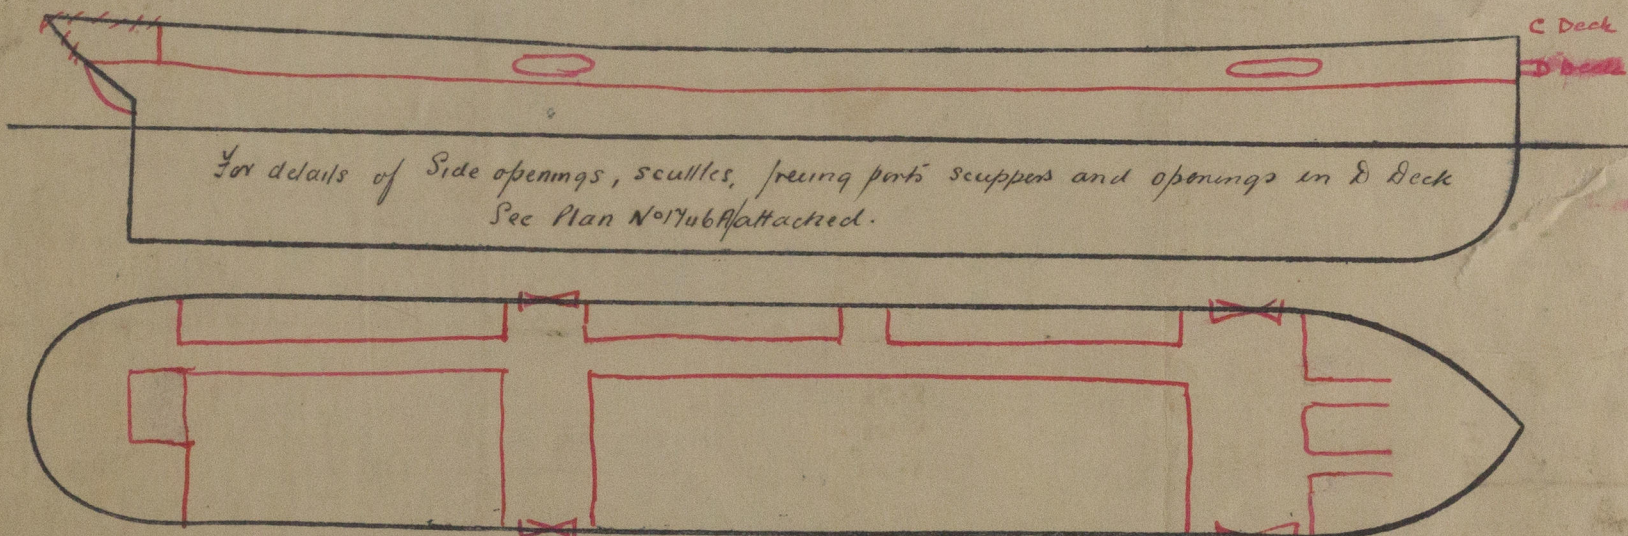 C Deck
D Deck
For details of Side openings, scuttles, freeing ports scuppers and openings in D Deck
See Plan No 1746A attached.